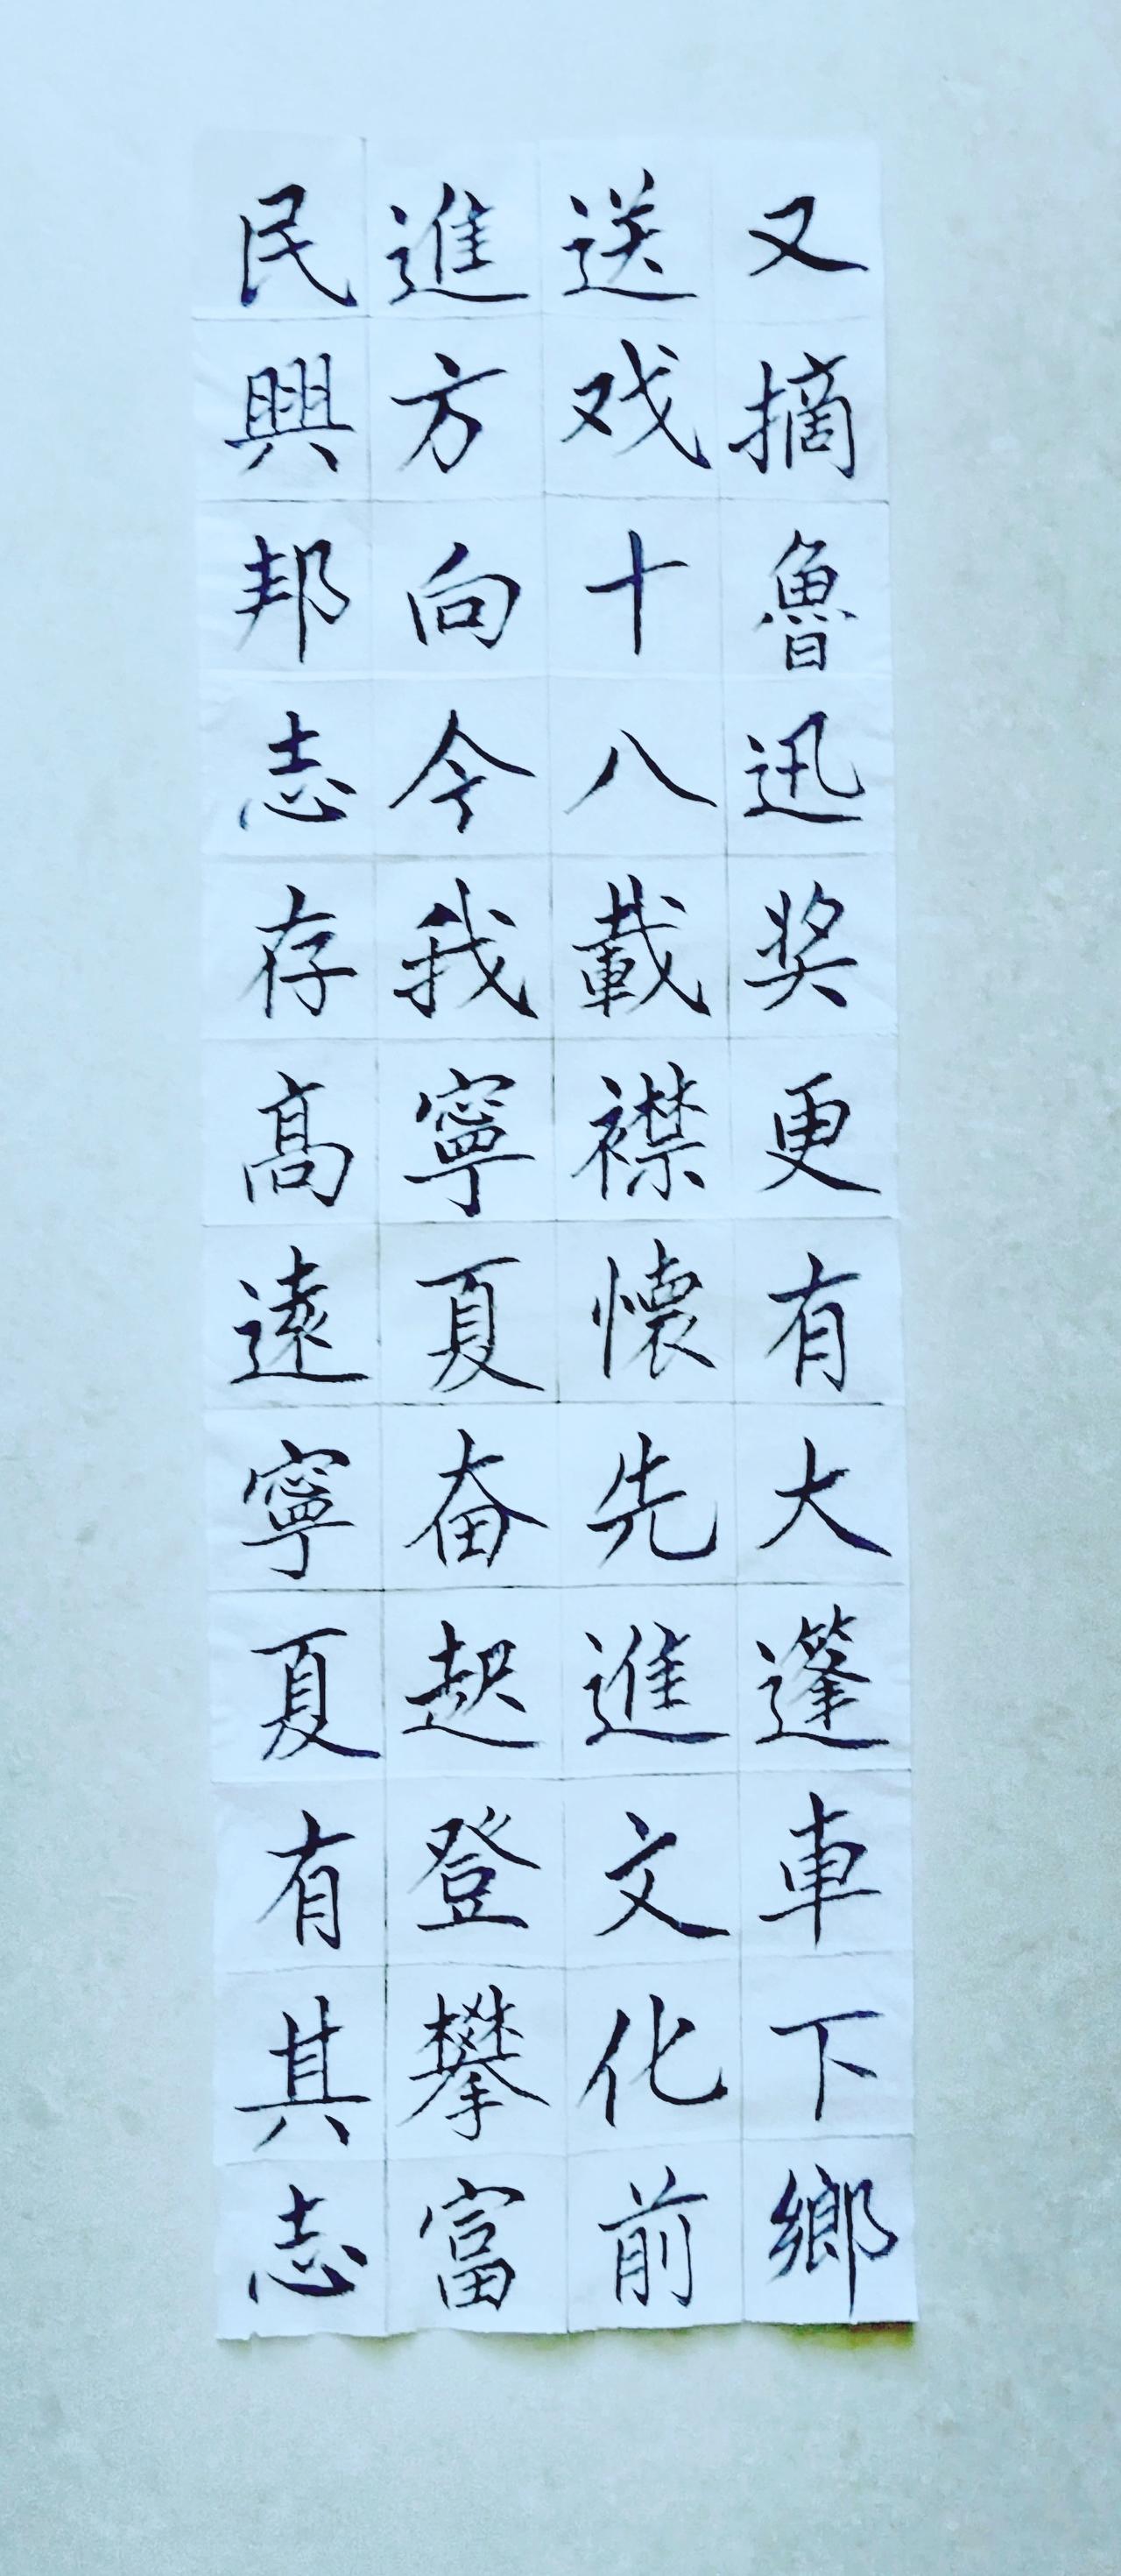 又摘魯迅奖更有大篷車下鄉
送戏十八載襟懷先進文化前
進方向今我寧夏奋起登攀富
民興邦志存高遠寧夏有其志